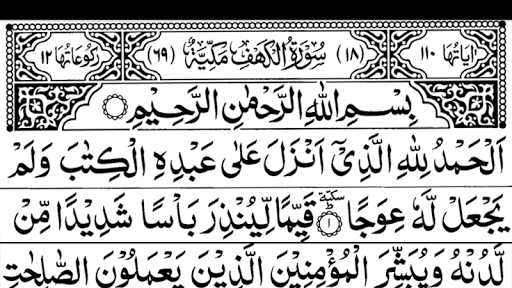 اٰيَاتُهَا ١١٠ (١٨) سُوْرَةُ الْكَهْفِ مَكِّيَّةٌ (٦٩) رُكُوْعَاتُهَا ١٢
بِسْمِ اللّٰهِ الرَّحْمٰنِ الرَّحِيْمِ
اَلْحَمْدُ لِلّٰهِ الَّذِيْٓ اَنْزَلَ عَلٰى عَبْدِهِ الْكِتٰبَ وَلَمْ
يَجْعَلْ لَّهٗ عِوَجًا سكتة ١ قَيِّمًا لِّيُنْذِرَ بَاْسًا شَدِيْدًا مِّنْ
لَّدُنْهُ وَيُبَشِّرَ الْمُؤْمِنِيْنَ الَّذِيْنَ يَعْمَلُوْنَ الصّٰلِحٰتِ